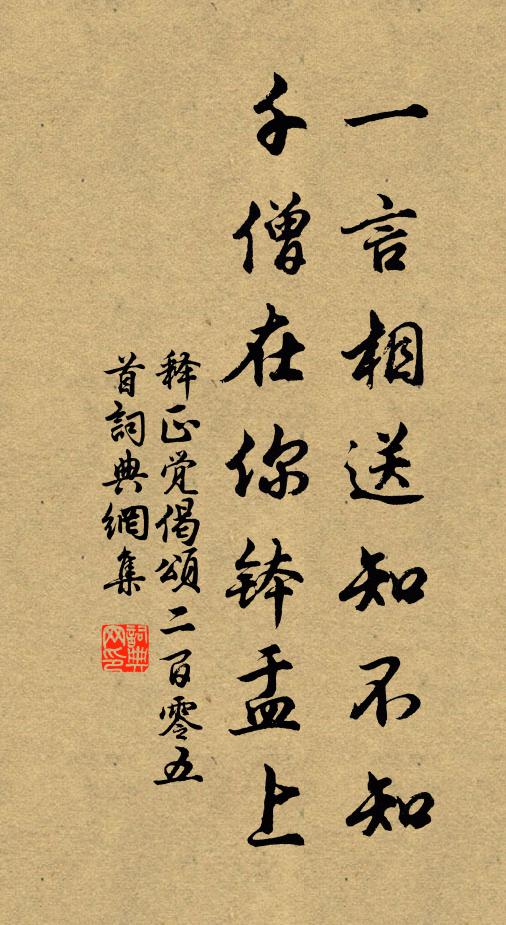 一言相送知不知
千僧在你钵盂上
释正觉偈頌二百零五
首詞典網集
詞典网印